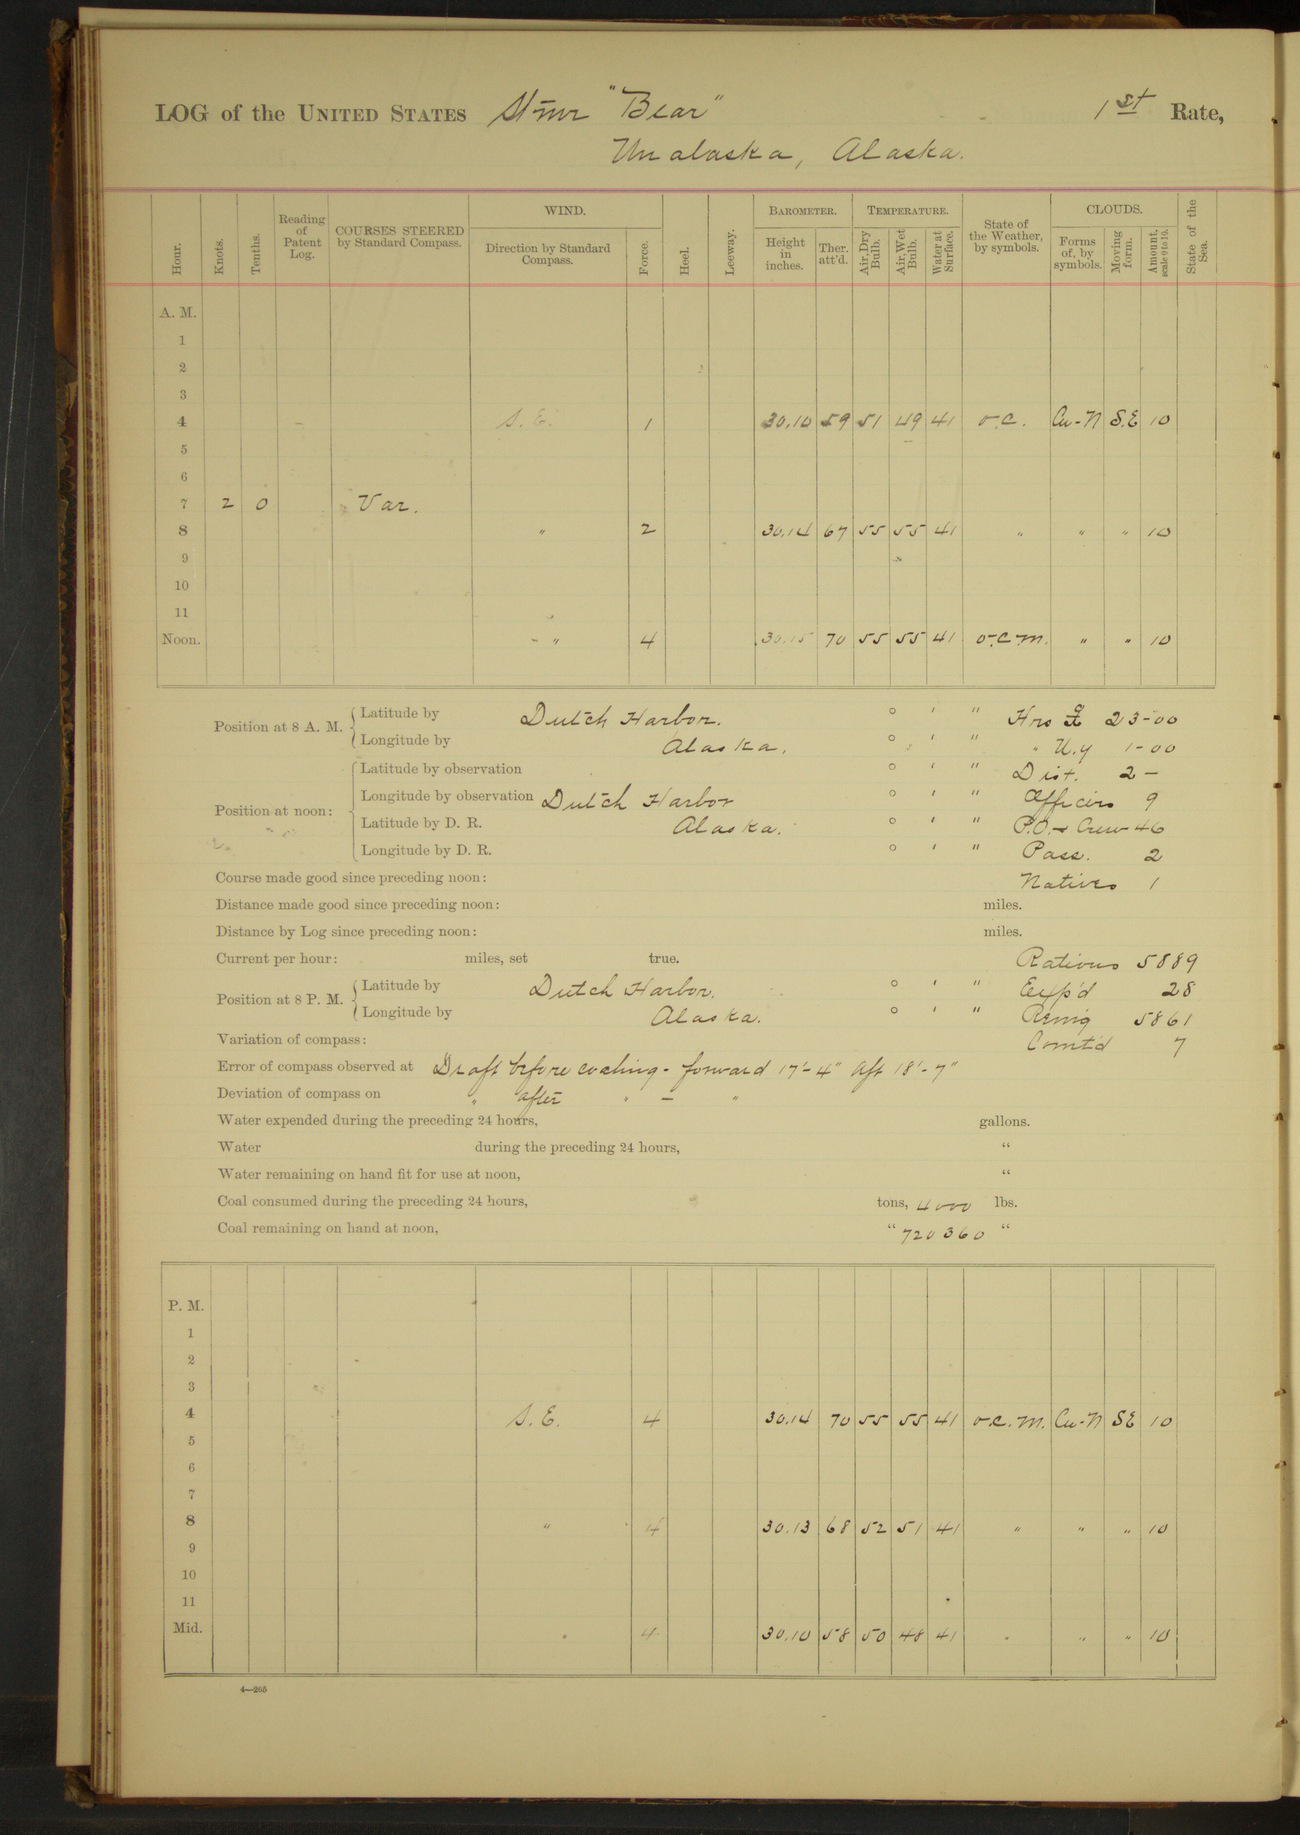 LOG of the UNITED STATES Stmr "Bear" 1st Rate,
Unalaska, Alaska.
Hour. Knots. Tenths. Reading of Patent Log. COURSES STEERED by Standard Compass. WIND. Direction by Standard Compass. Force. Heel. Leeway. BAROMETER. Height in inches. Ther. att'd. TEMPERATURE. Air, Dry Bulb. Air, Wet Bulb. Water at Surface. State of the Weather, by symbols. CLOUDS. Forms of, by symbols. Moving form. Amount, scale 0 to 10. State of the Sea.
A. M.
1
2
3
4 S. E. 1 30.10 59 51 49 41 o.c. Cu-N S.E 10
5
6
7 2 0 Var.
8 " 2 30.14 67 55 55 41 " " " 10
9
10
11
Noon. " 4 30.15 70 55 55 41 o.c.m. " " 10
Position at 8 A. M. Latitude by Dutch Harbor. ° ' " Hrs 23-00
Longitude by Alaska. ° ' " " U.y 1-00
Latitude by observation ° ' " Dist. 2 -
Position at noon: Longitude by observation Dutch Harbor ° ' " Officers 9
Latitude by D. R. Alaska. ° ' " P.O. & Crew 46
Longitude by D. R. ° ' " Pass. 2
Course made good since preceding noon: Natives 1
Distance made good since preceding noon: miles.
Distance by Log since preceding noon: miles.
Current per hour: miles, set true. Rations 5889
Position at 8 P. M. Latitude by Dutch Harbor. ° ' " Exp'd 28
Longitude by Alaska. ° ' " Remg 5861
Variation of compass: Comt'd 7
Error of compass observed at Draft before coaling - forward 17'-4" Aft 18'-7"
Deviation of compass on " after " - "
Water expended during the preceding 24 hours, gallons.
Water during the preceding 24 hours, "
Water remaining on hand fit for use at noon, "
Coal consumed during the preceding 24 hours, tons, 4000 lbs.
Coal remaining on hand at noon, " 720360 "
P. M.
1
2
3
4 S. E. 4 30.14 70 55 55 41 o.c.m. Cu-N SE 10
5
6
7
8 " 4 30.13 68 52 51 41 " " " 10
9
10
11
Mid. " 4 30.10 58 50 48 41 " " " 10
4—265